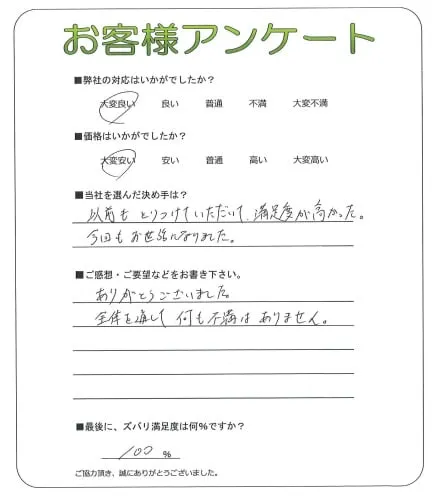 お客様アンケート
■弊社の対応はいかがでしたか？
大変良い 良い 普通 不満 大変不満
■価格はいかがでしたか？
大変安い 安い 普通 高い 大変高い
■当社を選んだ決め手は？
以前も とりつけていただいて、満足度が高かった。
今回もお世話になりました。
■ご感想・ご要望などをお書き下さい。
ありがとうございました。
全体を通して 何も不満はありません。
■最後に、ズバリ満足度は何％ですか？
100 %
ご協力頂き、誠にありがとうございました。